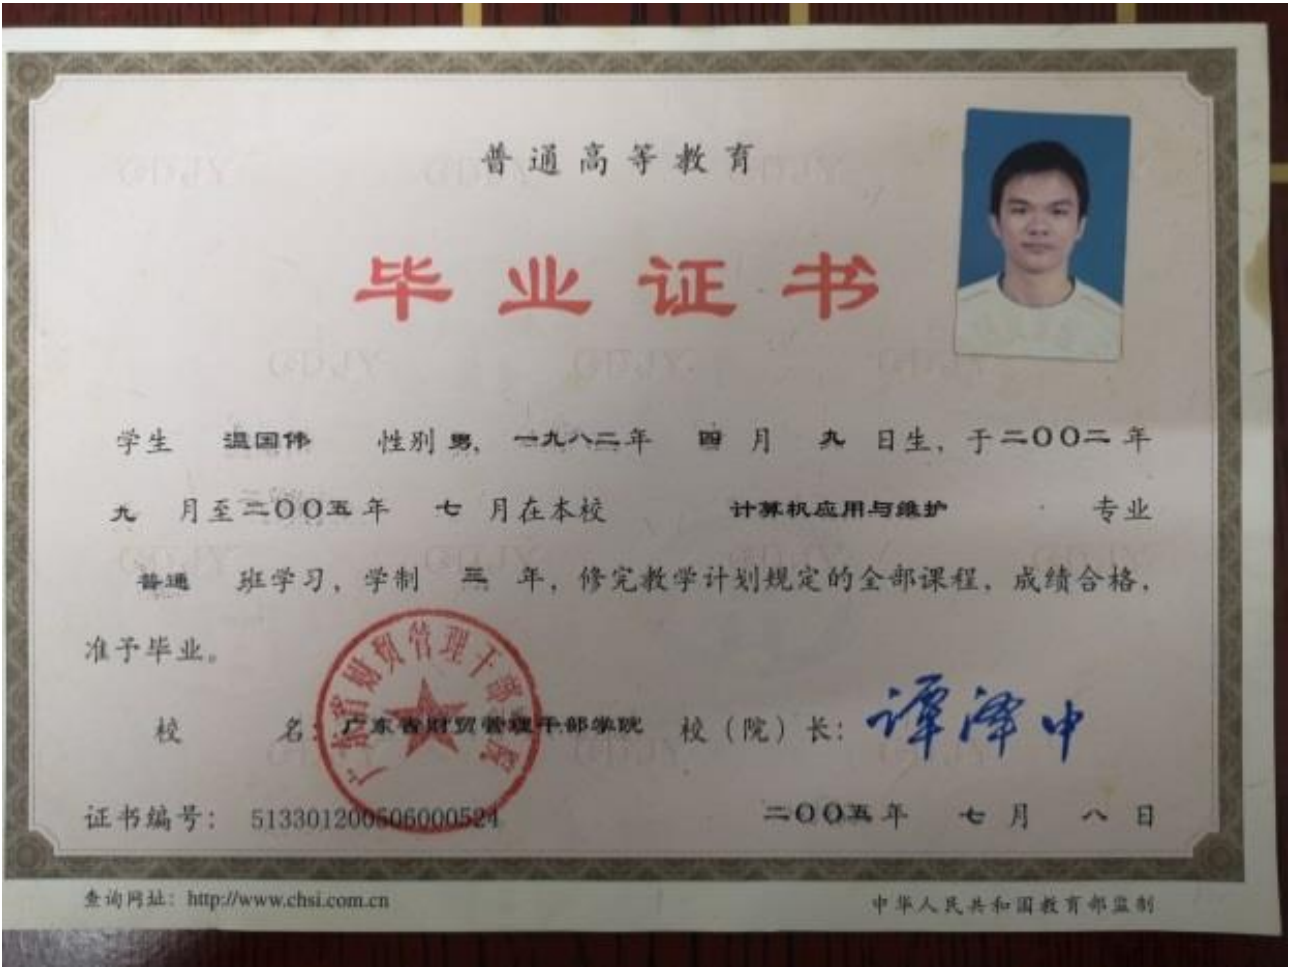 普通高等教育
毕业证书
学生 温国伟 性别 男, 一九八二年 四 月 九 日生, 于二〇〇二年
九 月至二〇〇五年 七 月在本校 计算机应用与维护 专业
普通 班学习, 学制 三 年, 修完教学计划规定的全部课程, 成绩合格,
准予毕业。
广东省财贸管理干部学院
校 名: 广东省财贸管理干部学院 校(院)长: 谭泽中
证书编号: 513301200506000524
二〇〇五年 七月 八日
查询网址: http://www.chsi.com.cn
中华人民共和国教育部监制